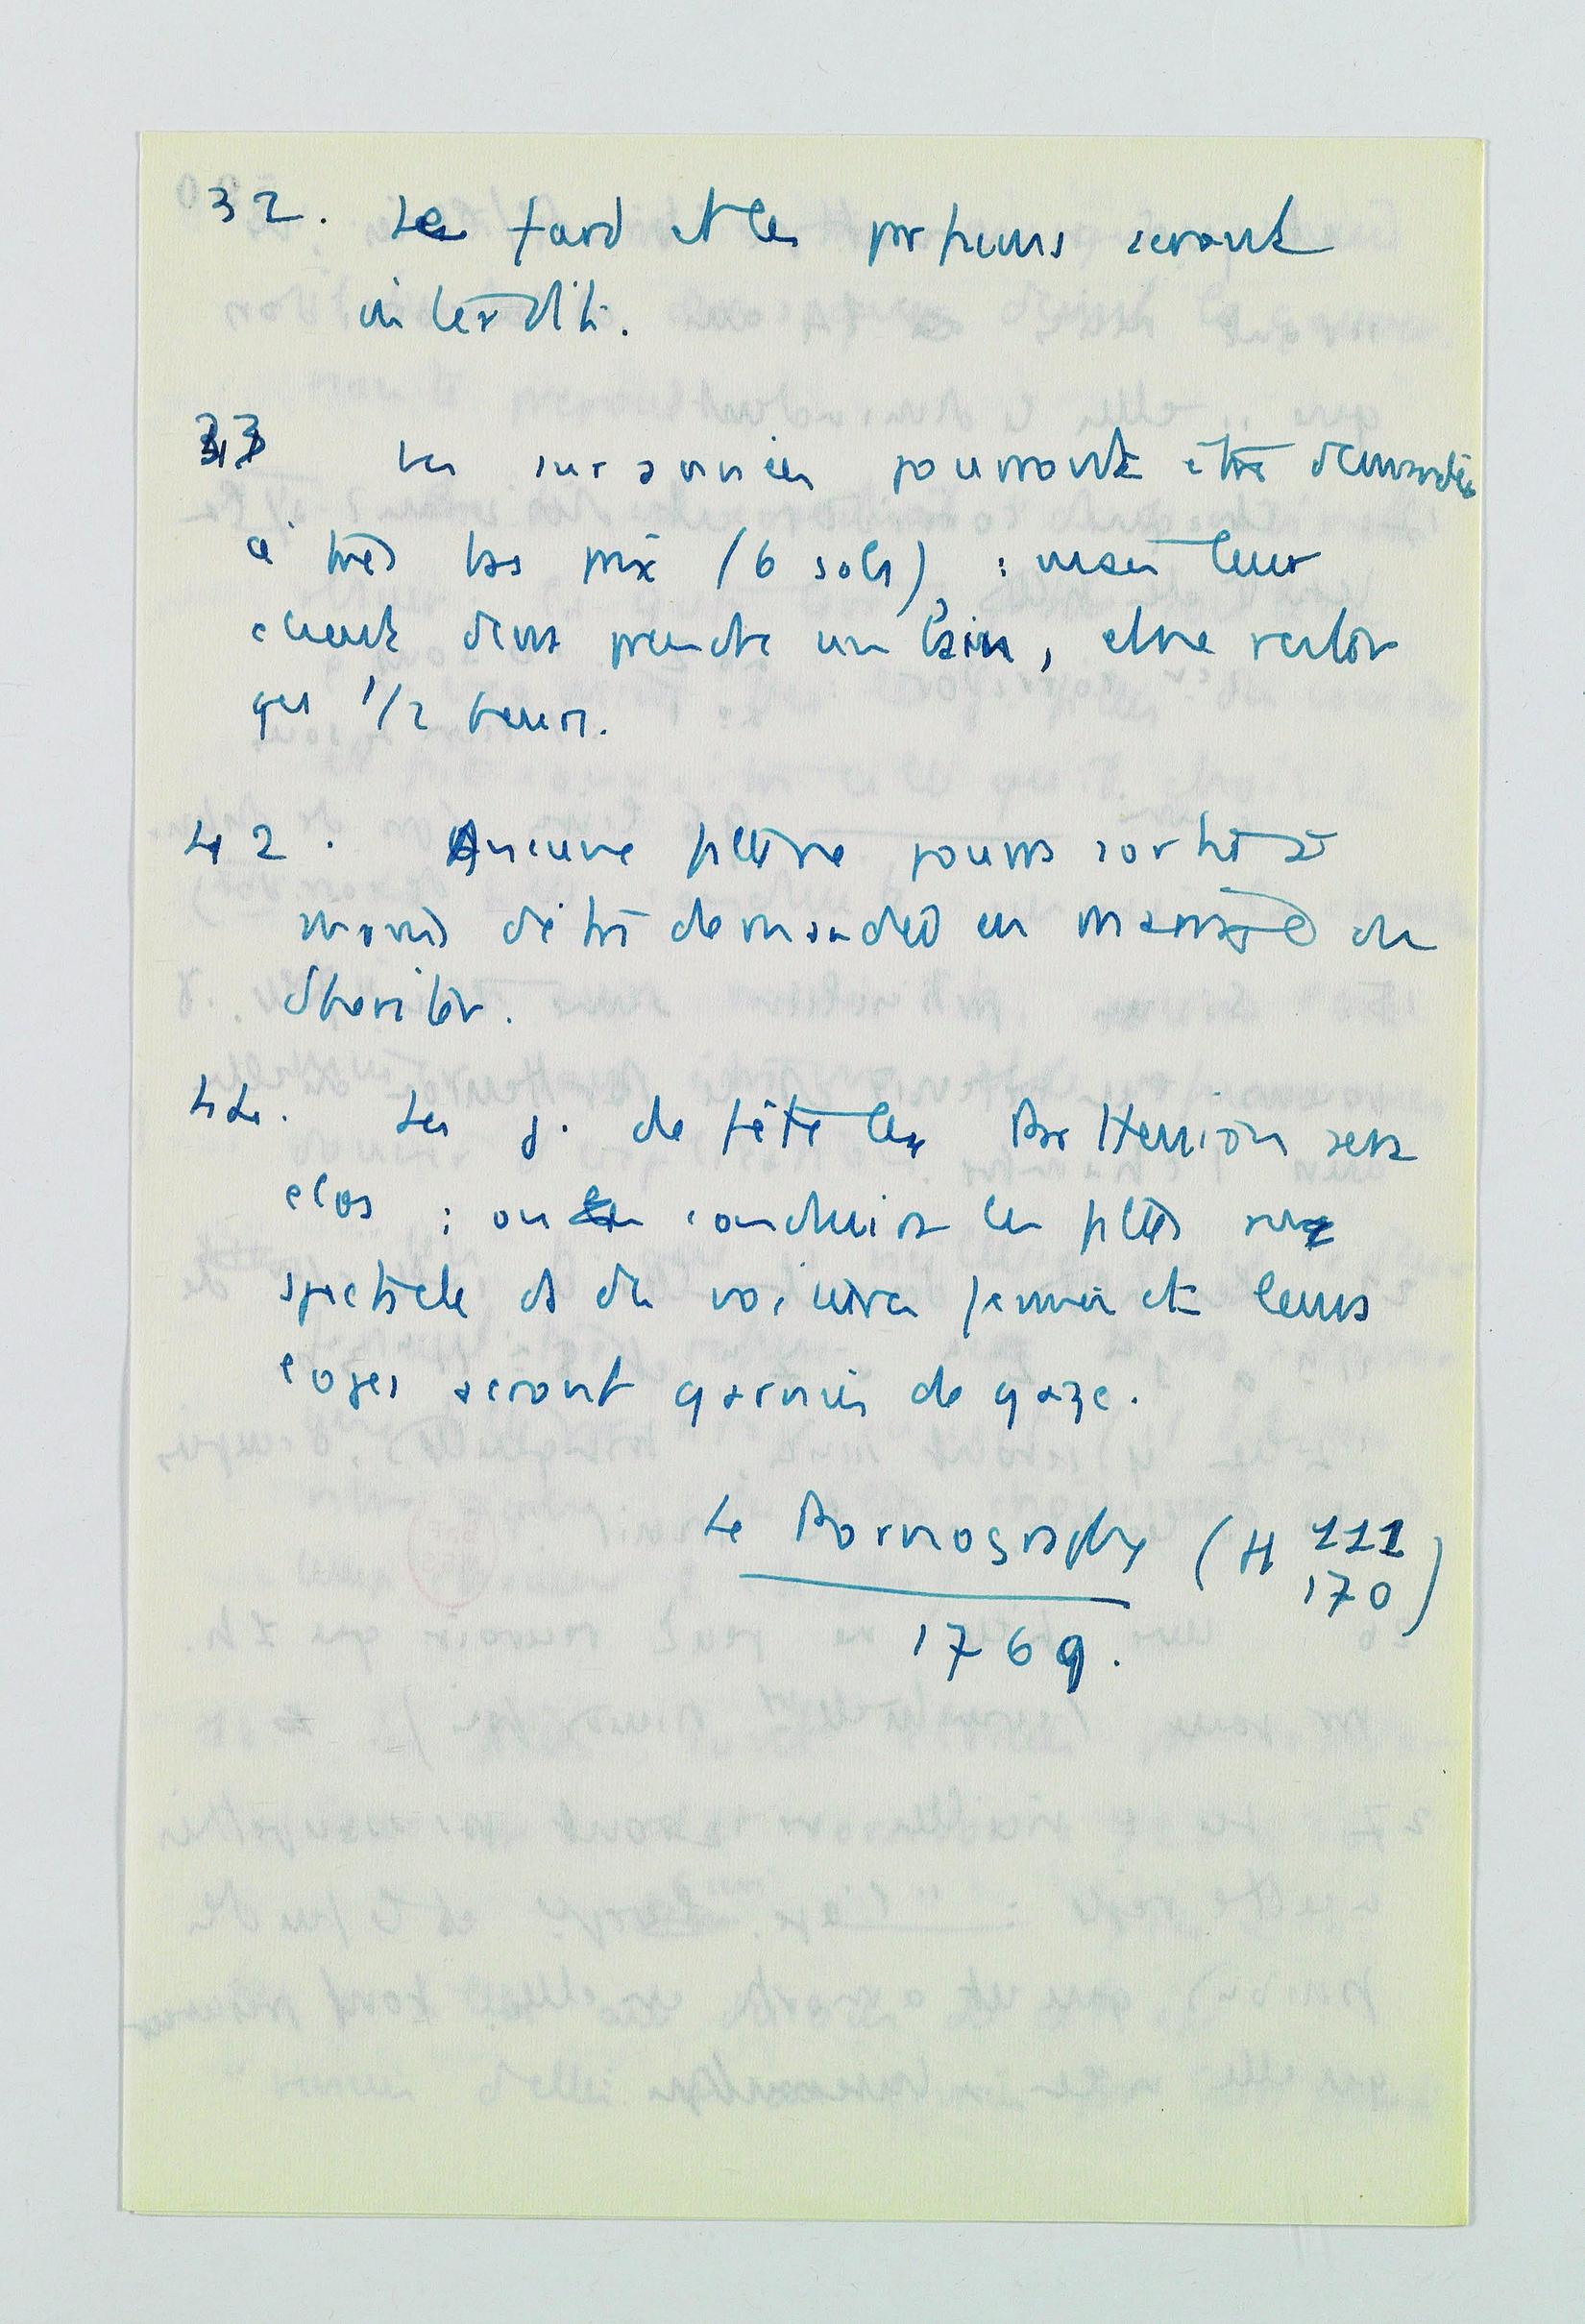 32. Le fard et les parfums seront
interdits.
33 Les surannées pourront être demandées
à très bas prix (6 sols) : mais leur
client devra prendre un bain, et ne rester
que 1/2 heure.
42. Aucune fille ne pourra sortir à
moins d'être demandée en mariage ou
d'hériter.
44. Les j. de fête les Parthenion sera
clos : on conduira les filles au
spectacle ds des voitures fermées et leurs
loges seront garnies de gaze.
Le Pornographe (H 111
170)
1769.